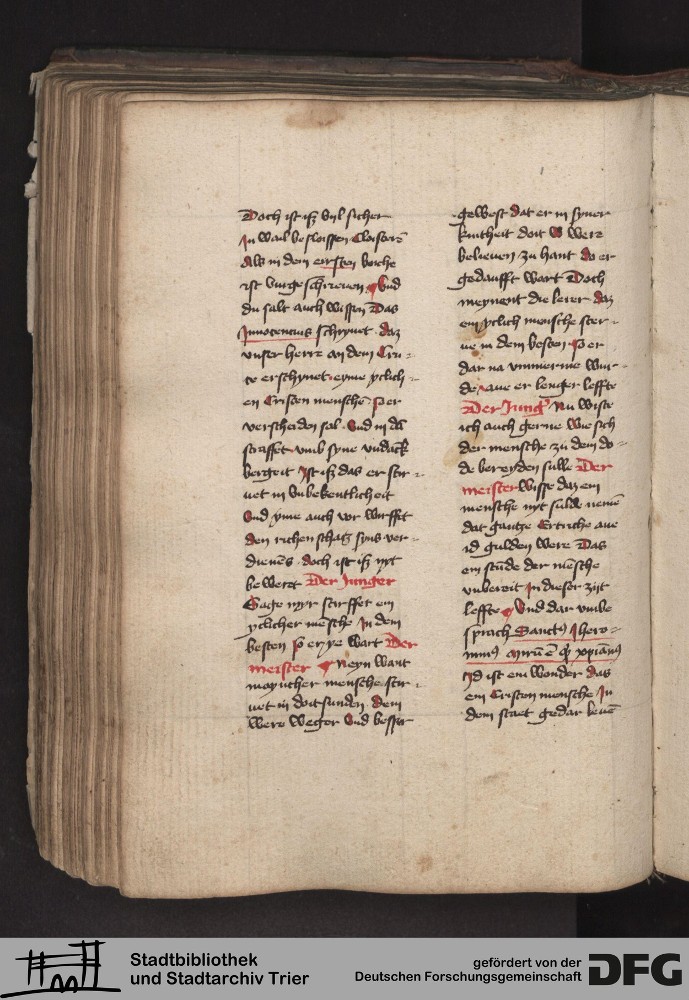 Doch ist iß vyl sicher
In wail besloissen Cloistere
Als in dem eirsten boiche
ist vurgeschreuen Vnd
du salt auch wissen Das
Innocencius schrynet daz
vnser herre an dem Cru-
ce erschynet eyme yclich-
en Cristen menschē so er
verscheiden sal Vnd in dē
straffet vmb syne vndāck
bergeit Ist iß das er stir-
uet in vnbekentlicheit
Vnd yme auch vor wirffet
den richen schatz syns ver-
dienēs doch ist iß nyt
beweret Der Junger
Sage myr stirffet ein
yclicher mēsche in dem
besten so er ye wart Der
meister Neyn want
manicher mensche stir-
uet in doitsunden dem
were weger vnd besser
gewest dat er in syner
kintheit doit were
belieuen zu hant do er
gedaufft wart Doch
meynent die lerer daz
ein yclich mensche ster-
ue in dem besten so er
dar na vmmerme wur-
de aue er lenger leffte
Der Jung' Nu wiste
ich auch gerne wie sich
der mensche zu dem do-
de bereyden sulle Der
meister Wisse daz ein
mensche nyt sulde nemē
dat gantze Ertriche aue
id gulden were Das
ein stūde der mēsche
vnbereit in dieser zijt
leffte Vnd dar vmbe
sprach Sanctus Ihero-
nimus
Id ist ein wonder das
ein Cristen mensche In
dem staet gedar leuē
Stadtbibliothek
und Stadtarchiv Trier
gefördert von der
Deutschen Forschungsgemeinschaft
DFG